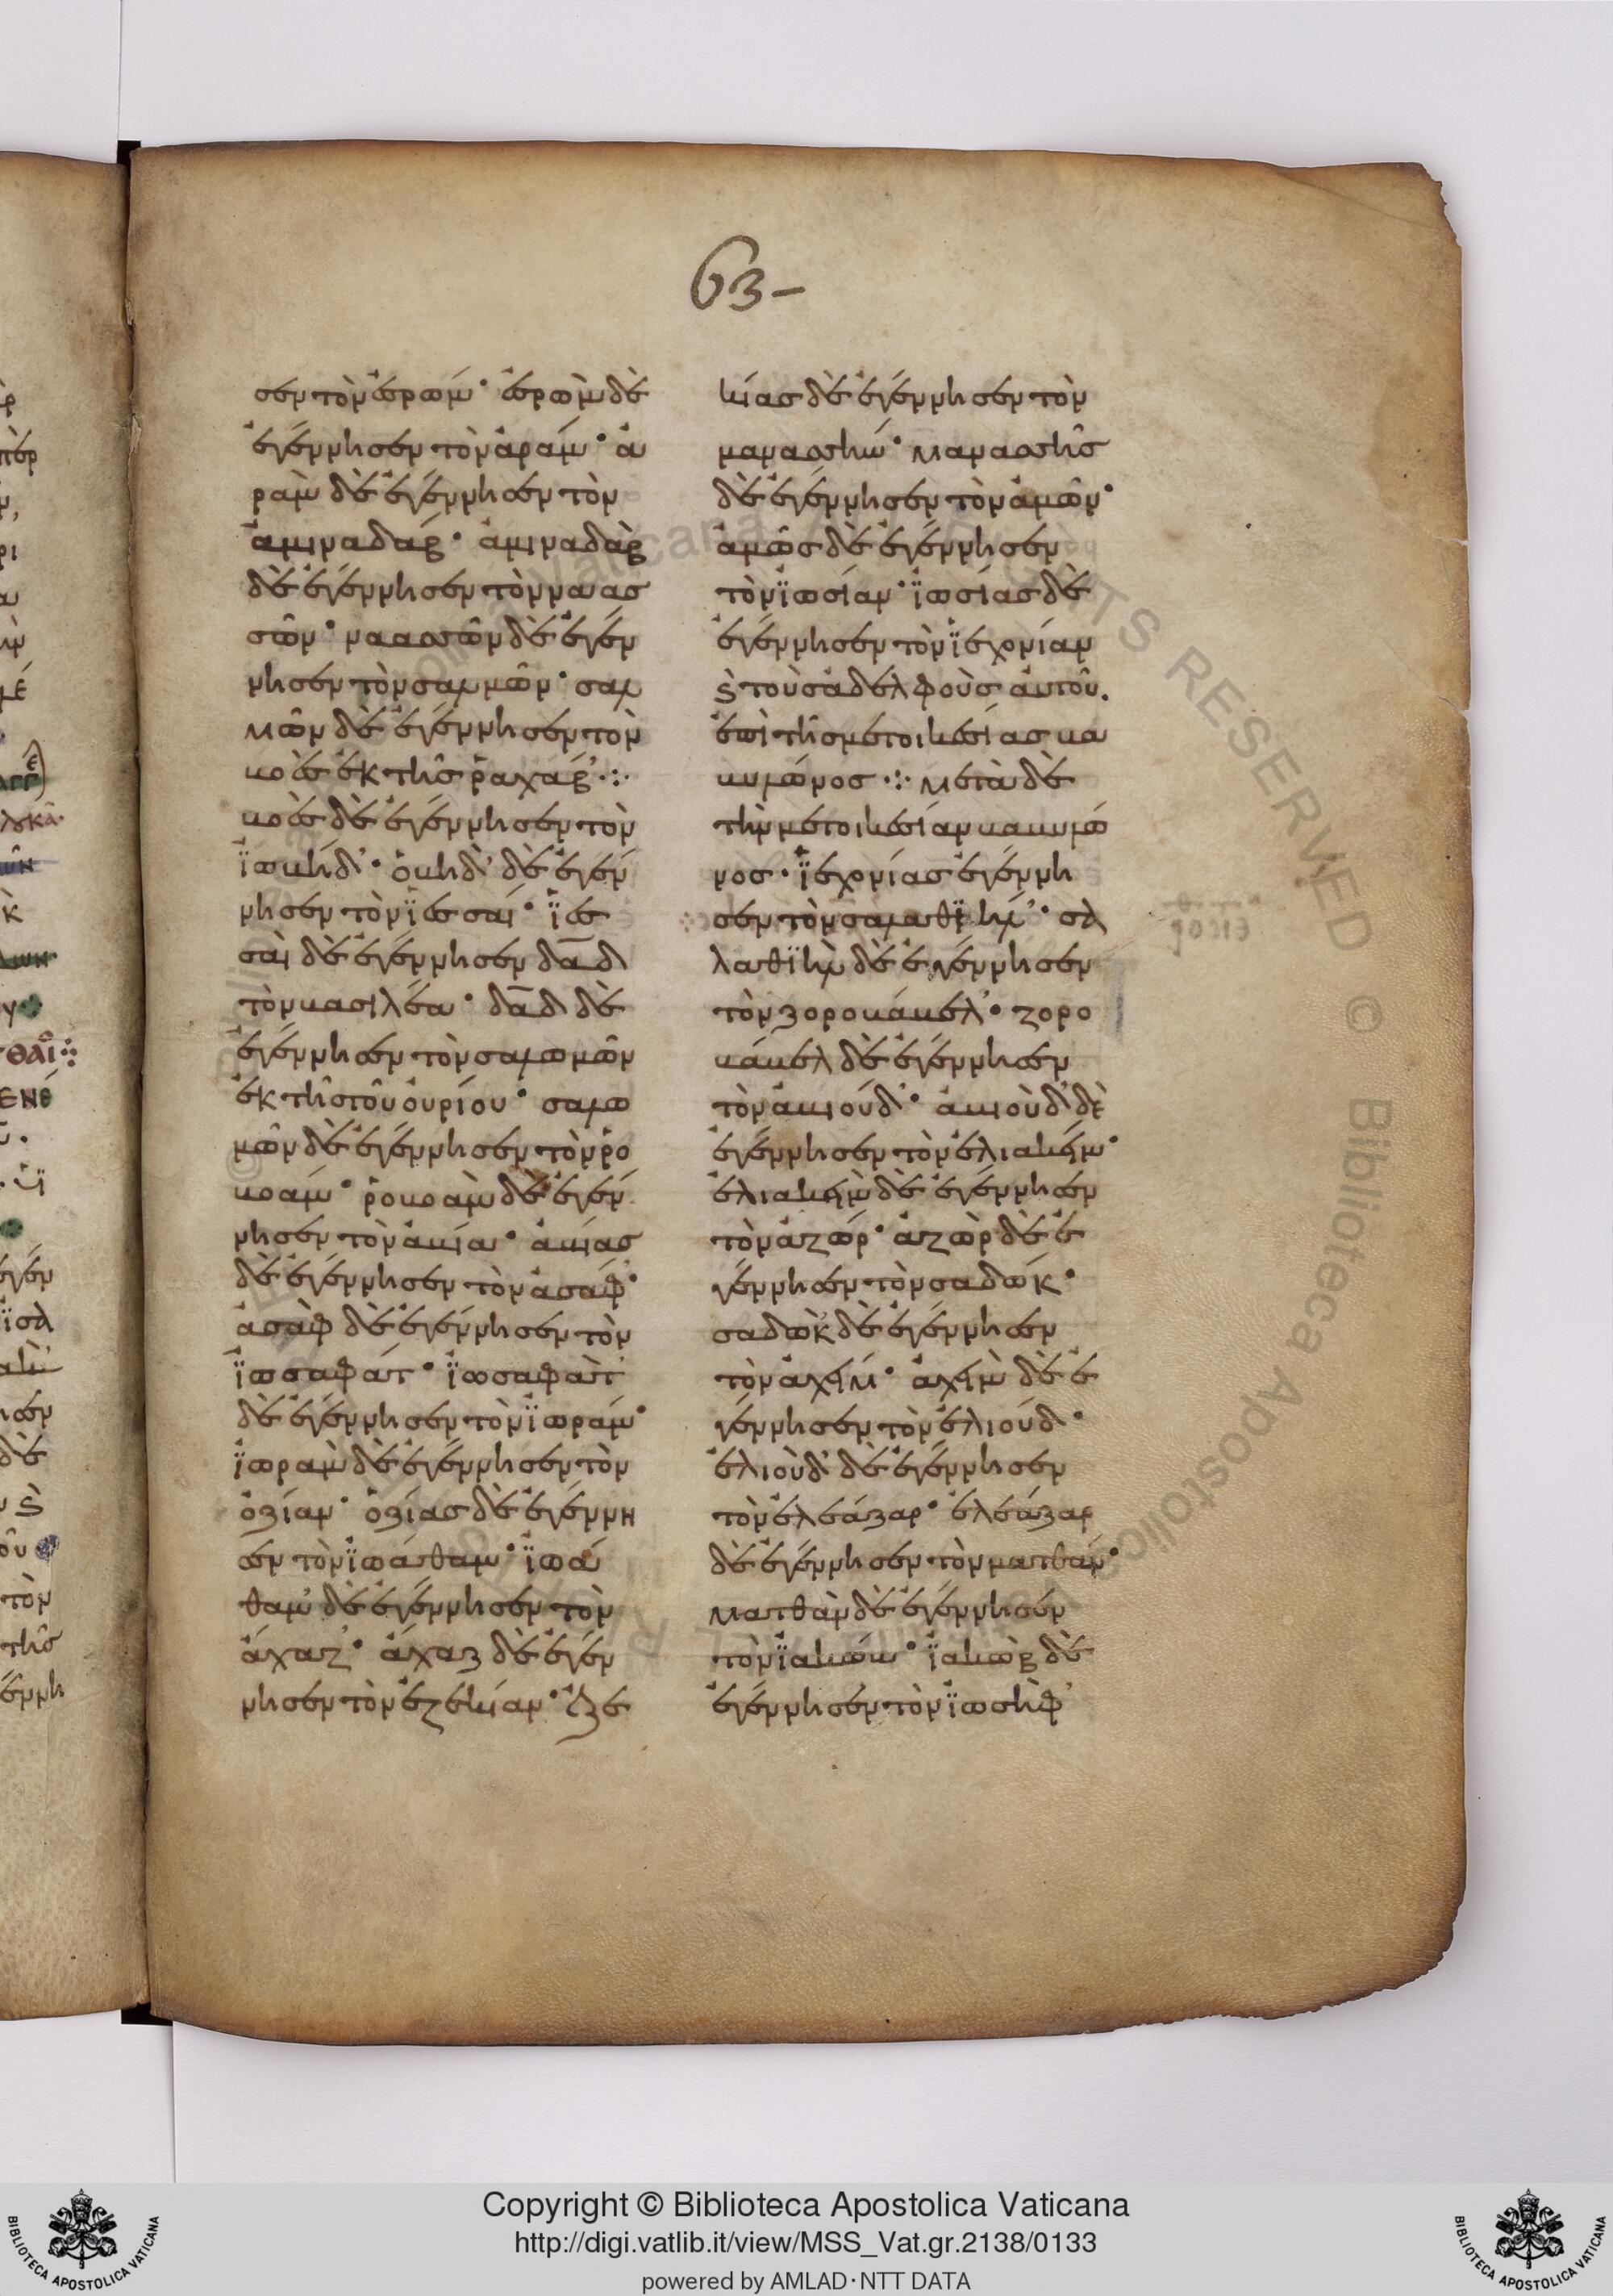 63-
σεν τὸν ἐσρώμ· ἐσρὼμ δὲ
ἐγέννησεν τὸν ἀράμ· ἀ
ρὰμ δὲ ἐγέννησεν τὸν
ἀμιναδάβ· ἀμιναδὰβ
δὲ ἐγέννησεν τὸν ναασ
σῶν· ναασσῶν δὲ ἐγέν
νησεν τὸν σαλμῶν· σαλ
μῶν δὲ ἐγέννησεν τὸν
βοὲς ἐκ τῆς ῥαχάβ'·:·
βοὲς δὲ ἐγέννησεν τὸν
ϊωβήδ'· ὀβηδ' δὲ ἐγέν
νησεν τὸν ϊεσσαί· ϊεσ
σαὶ δὲ ἐγέννησεν δα̅δ
τὸν βασιλέα· δα̅δ δὲ
ἐγέννησεν τὸν σαλομῶν
ἐκ τῆς τοῦ οὐρίου· σαλο
μῶν δὲ ἐγέννησεν τὸν ῥο
βοάμ· ῥοβοὰμ δὲ ἐγέν
νησεν τὸν ἀβιά· ἀβίας
δὲ ἐγέννησεν τὸν ἀσάφ'
ἀσὰφ δὲ ἐγέννησεν τὸν
ϊωσαφάτ· ϊωσαφὰτ'
δὲ ἐγέννησεν τὸν ϊωράμ·
ϊωρὰμ δὲ ἐγέννησεν τὸν
ὀζίαν· ὀζίας δὲ ἐγέννη
σεν τὸν ϊωάθαμ· ϊωά
θαμ' δὲ ἐγέννησεν τὸν
ἄχαζ'· ἄχαζ δὲ ἐγέν
νησεν τὸν ἐζεκίαν· ἐζε
κίας δὲ ἐγέννησεν τὸν
μανασσήν· μανασσῆς
δὲ ἐγέννησεν τὸν ἀμῶν·
ἀμῶς δὲ ἐγέννησεν
τὸν ϊωσίαν· ϊωσίας δὲ
ἐγέννησεν τὸν ϊεχονίαν
ϗ τοὺς ἀδελφοὺς αὐτοῦ.
ἐπὶ τῆς μετοικεσίας βα
βυλῶνος ·:· μετὰ δὲ
τὴν μετοικεσίαν βαβυλῶ
νος· ϊεχονίας ἐγέννη
σεν τὸν σαλαθϊήλ'· σα
λαθϊὴλ δὲ ἐγέννησεν
τὸν ζοροβάβελ'· ζορο
βάβελ δὲ ἐγέννησεν
τὸν ἀβιούδ'· ἀβιοὺδ' δὲ
ἐγέννησεν τὸν ἐλιακείμ·
ἐλιακεὶμ δὲ ἐγέννησεν
τὸν ἀζώρ· ἀζὼρ δὲ ἐ
γέννησεν τὸν σαδώκ·
σαδὼκ' δὲ ἐγέννησεν
τὸν ἀχείμ· ἀχεὶμ δὲ ἐ
γέννησεν τὸν ἐλιούδ·
ἐλιοὺδ' δὲ ἐγέννησεν
τὸν ἐλεάζαρ· ἐλεάζαρ
δὲ ἐγέννησεν τὸν ματθάν·
ματθὰν δὲ ἐγέννησεν
τὸν ϊακώβ· ϊακὼβ δὲ
ἐγέννησεν τὸν ϊωσὴφ'
Copyright © Biblioteca Apostolica Vaticana
http://digi.vatlib.it/view/MSS_Vat.gr.2138/0133
powered by AMLAD·NTT DATA